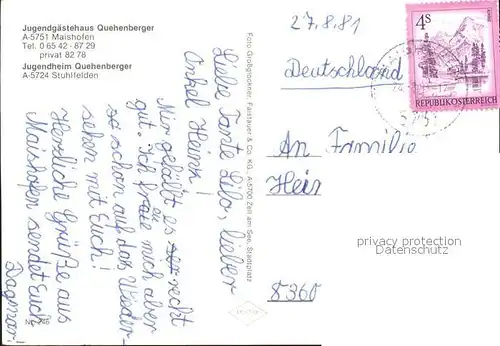 Jugendgästehaus Quehenberger
A-5751 Maishofen
Tel. 0 65 42 - 87 29
privat 82 78
Jugendheim Quehenberger
A-5724 Stuhlfelden
Liebe Tante Lilo, lieber
Onkel Heink!
Mir gefällt es recht
gut. Ich freue mich aber
schon auf das Wieder-
sehen mit Euch!
Herzliche Grüße aus
Maishofen sendet Euch
Dagmar
Foto Großglockner, Faistauer & Co. KG., A-5700 Zell am See, Stadtplatz
27.8.81
4S
REPUBLIK ÖSTERREICH
Deutschland
An Familie
Hein
privacy protection
Datenschutz
8360